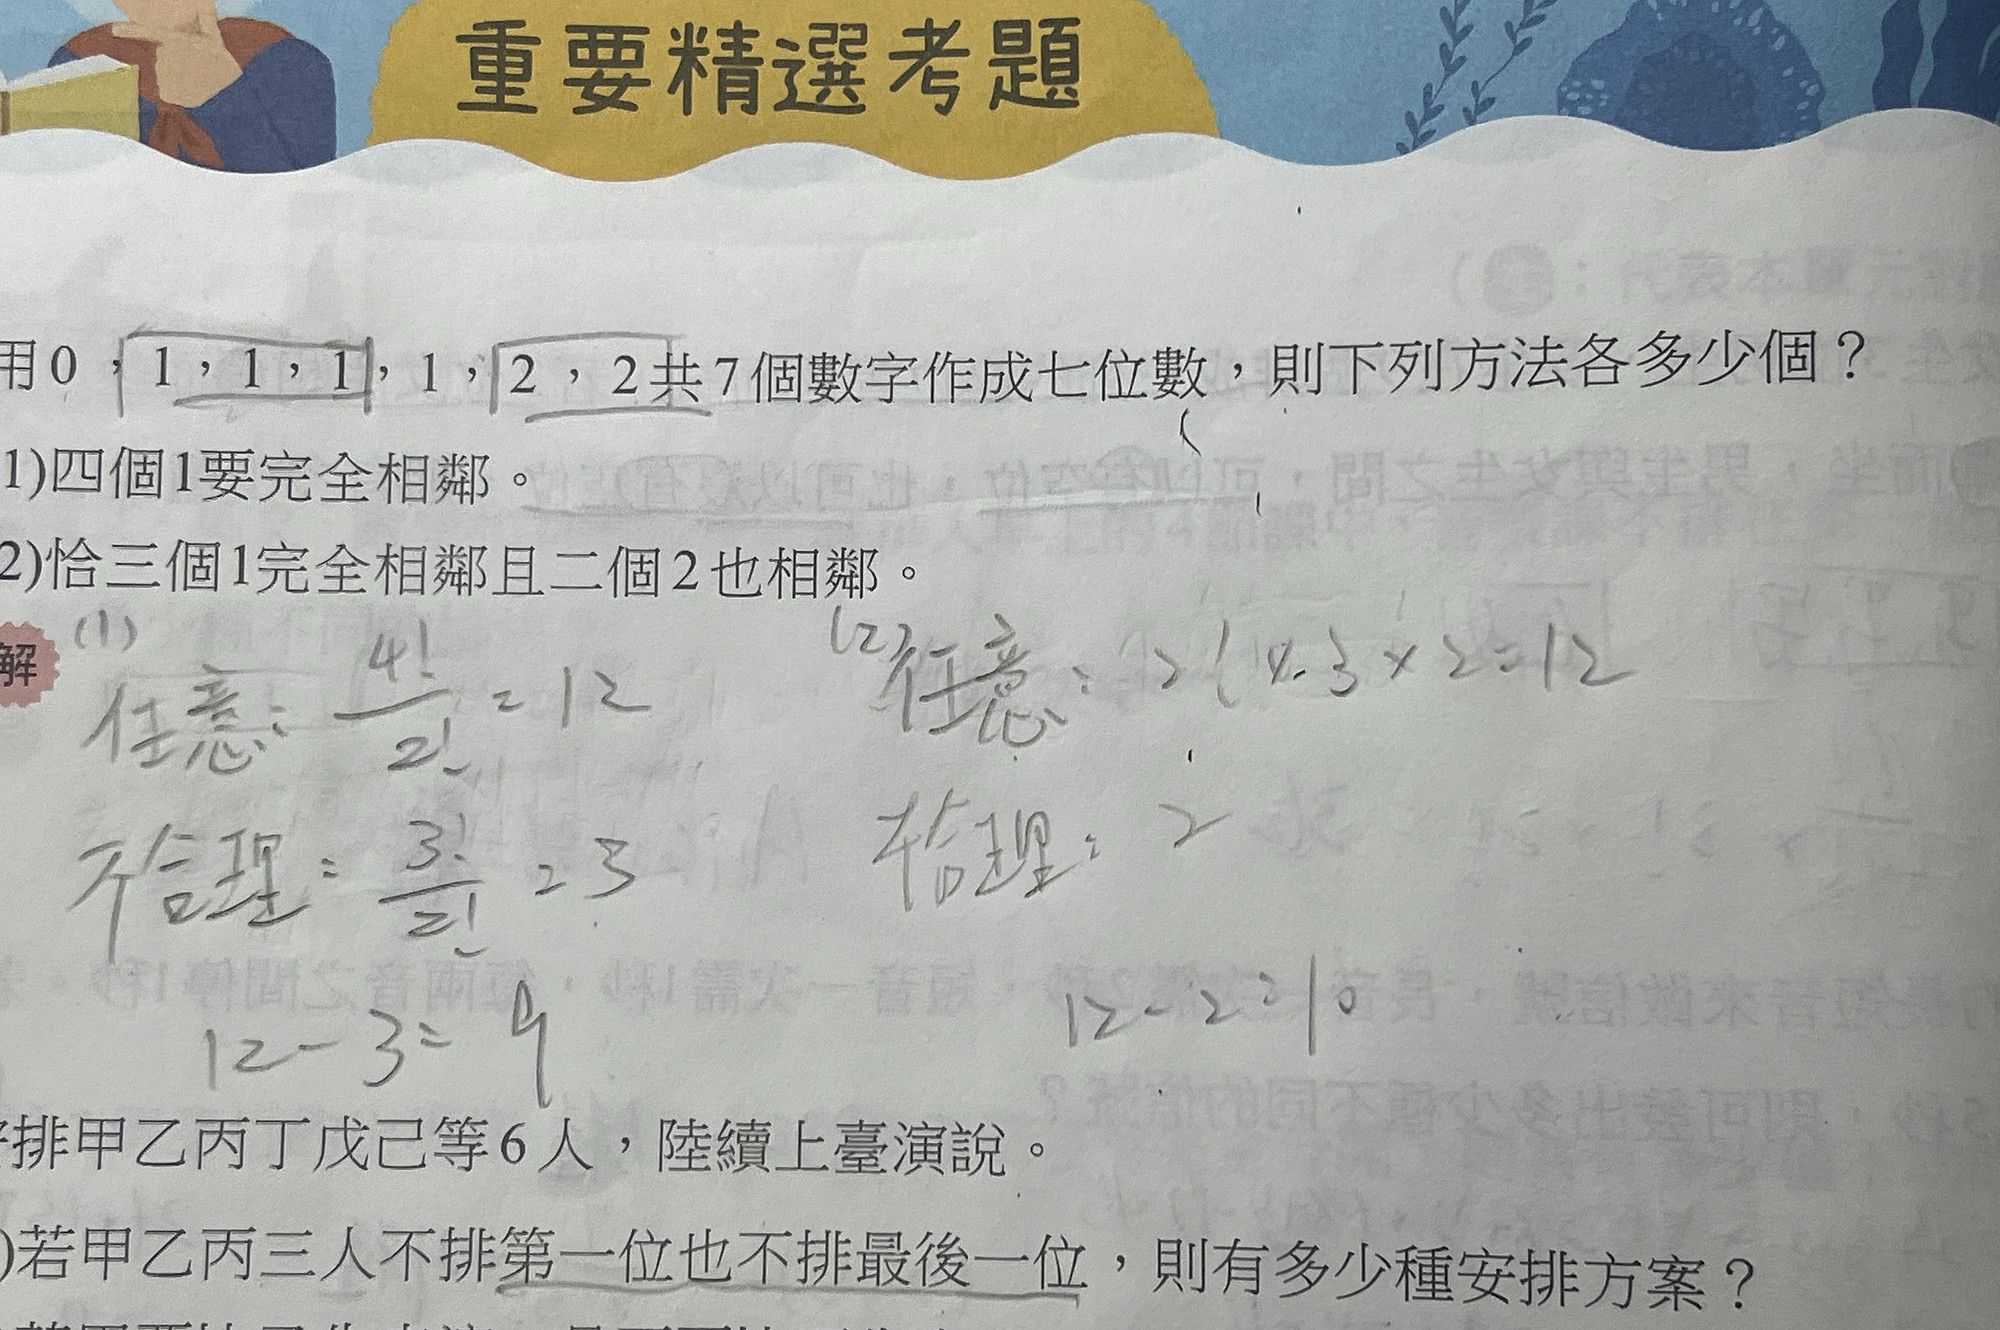 重要精選考題
用0，1，1，1，1，2，2共7個數字作成七位數，則下列方法各多少個？
1)四個1要完全相鄰。
2)恰三個1完全相鄰且二個2也相鄰。
解
(1) 任意：4!/2! = 12
不合理：3!/2! = 3
12-3=9
(2) 任意：2! × 3 × 2 = 12
不合理：2
12-2=10
排甲乙丙丁戊己等6人，陸續上臺演說。
)若甲乙丙三人不排第一位也不排最後一位，則有多少種安排方案？